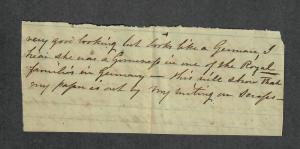 very good looking but looks like a German, I
hear she was a Governess in one of the Royal
families in Germany — this will show that
my paper is out by my writing on scraps —